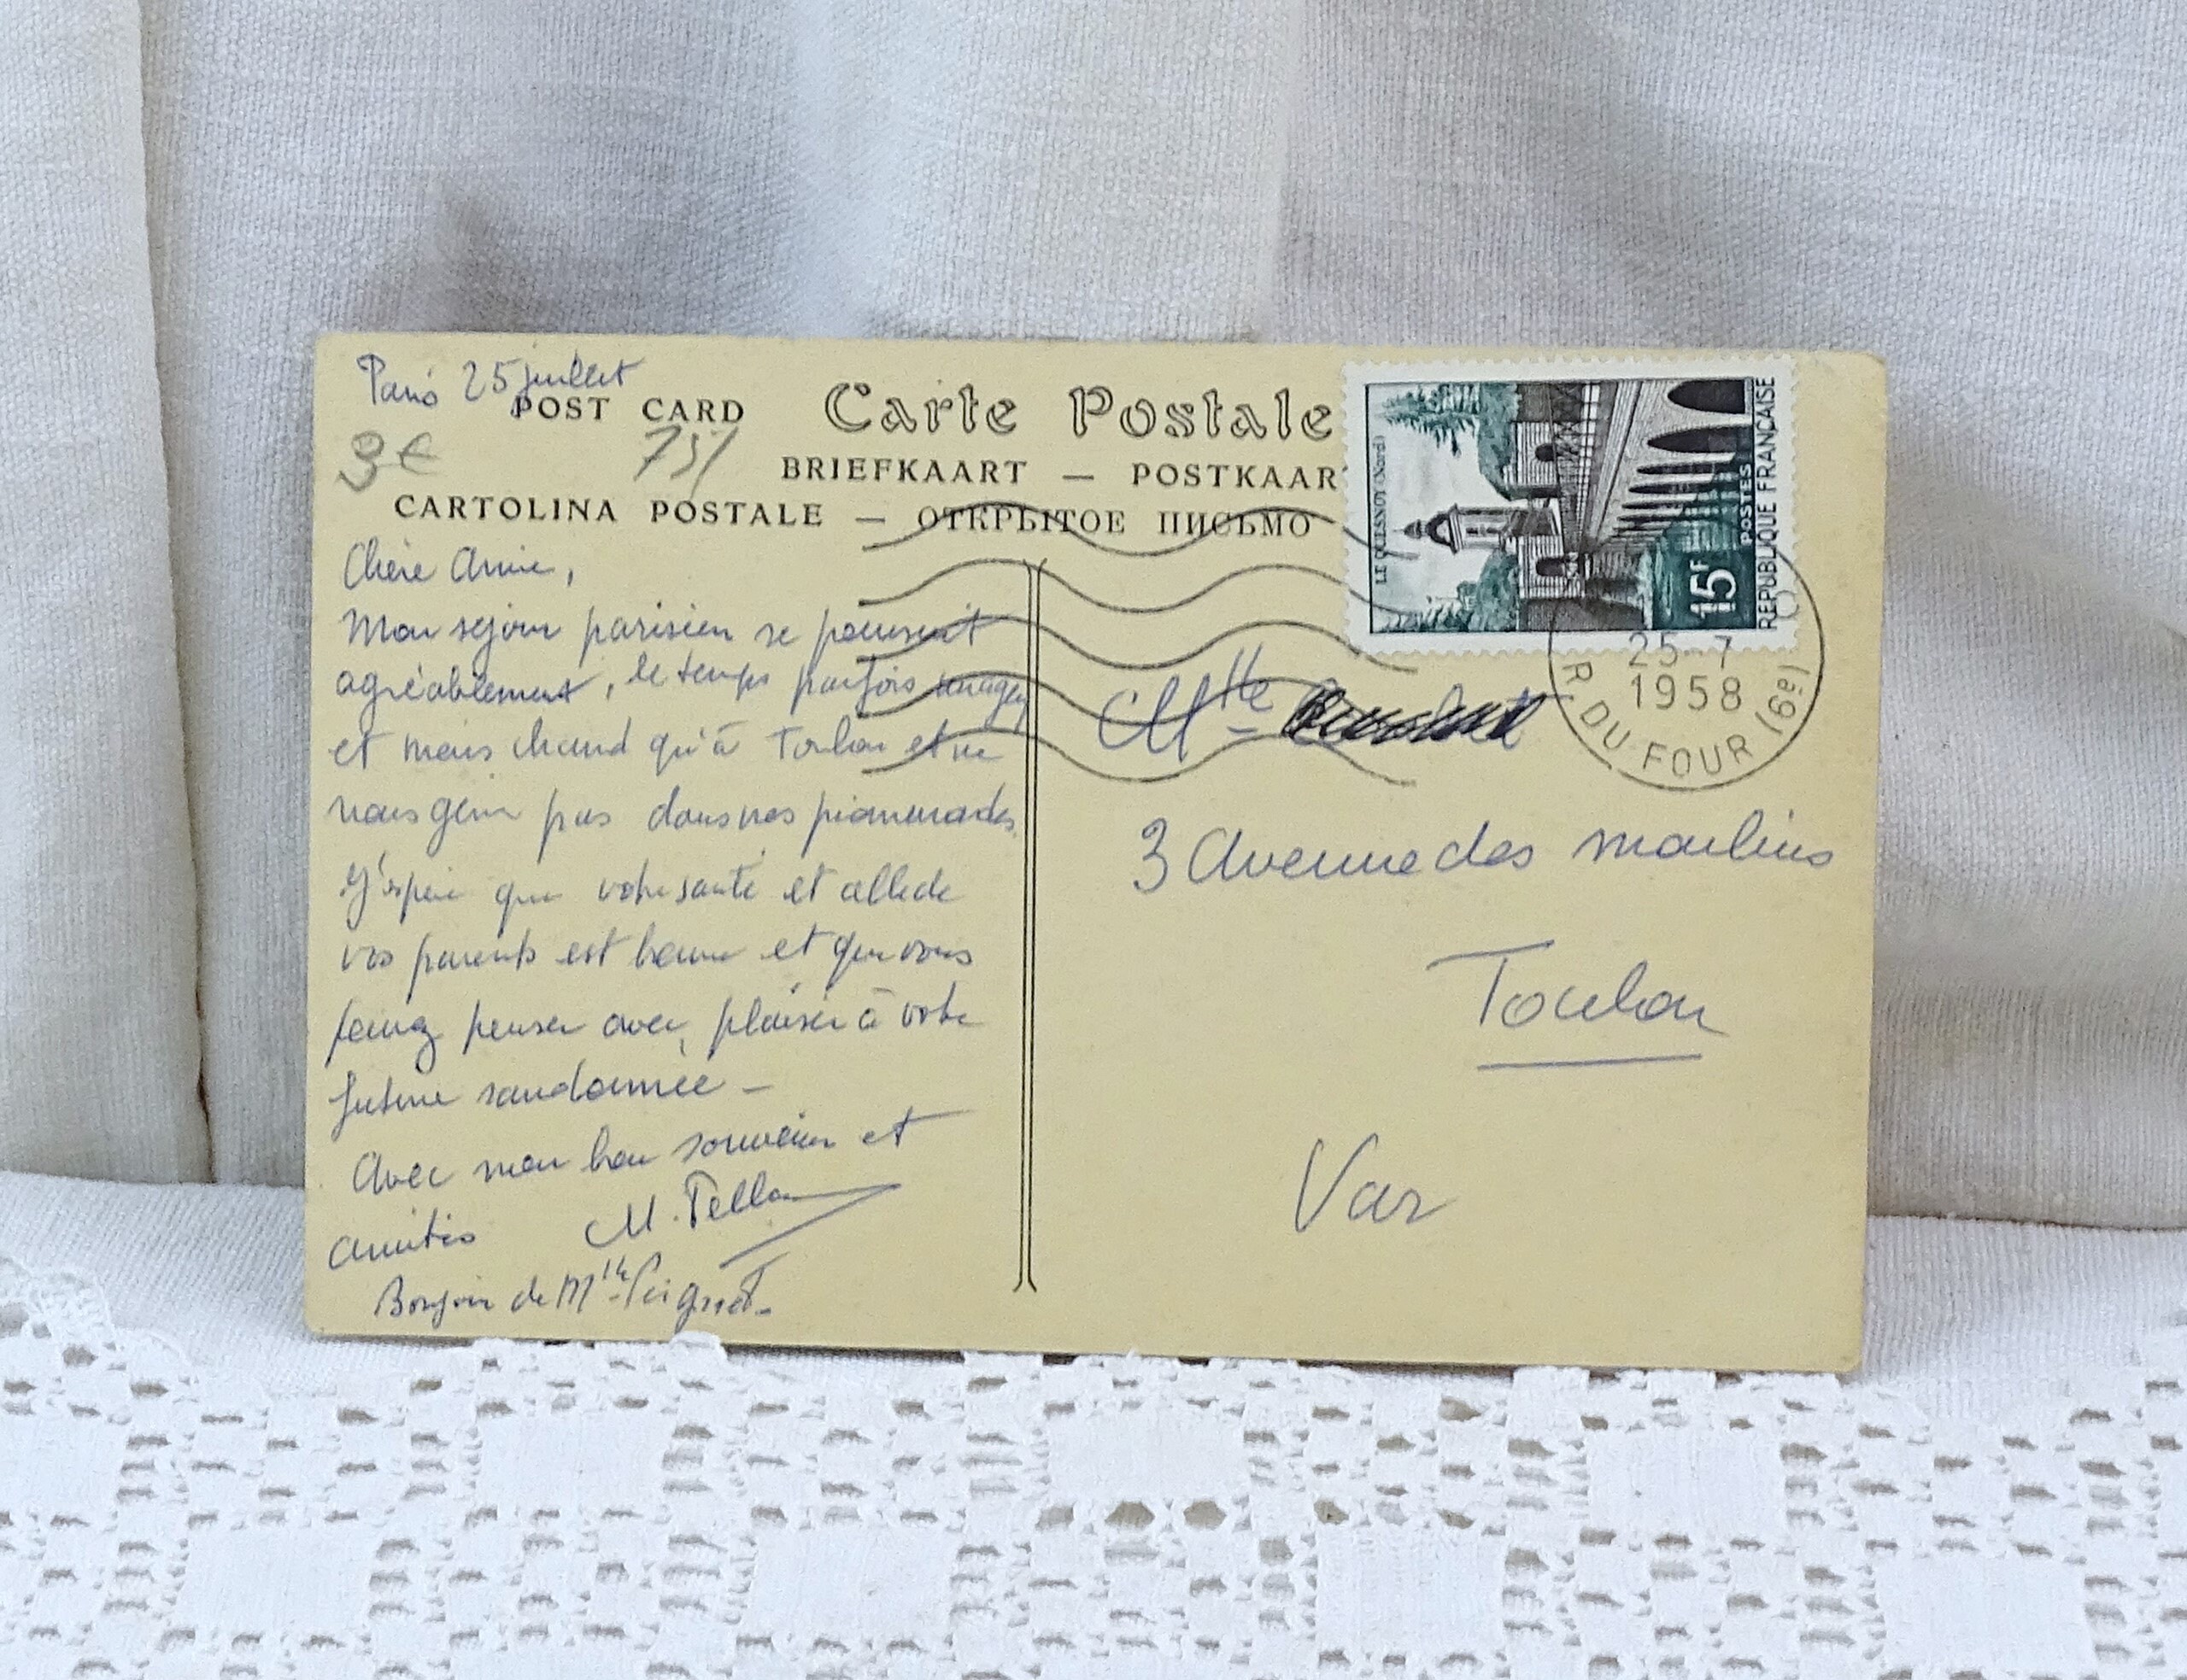 Paris 25 juillet
POST CARD
Carte Postale
3€
75/
BRIEFKAART — POSTKAAR
CARTOLINA POSTALE — ОТКРЫТОЕ ПИСЬМО
Chère Annie,
Mon séjour parisien se poursuit
agréablement, le temps parfois nuageux
et moins chaud qu'à Toulon et ne
nous gène pas dans nos promenades.
J'espère que votre santé et celle de
vos parents est bonne et que vous
pensez avec plaisir à votre
future randonnée —
Avec mon bon souvenir et
amitiés M.
Bonjour de Mlle
LE QUESNOY (Nord)
15F
POSTES
REPUBLIQUE FRANÇAISE
25-7
1958
R. DU FOUR (6e)
Mlle
3 Avenue des moulins
Toulon
Var